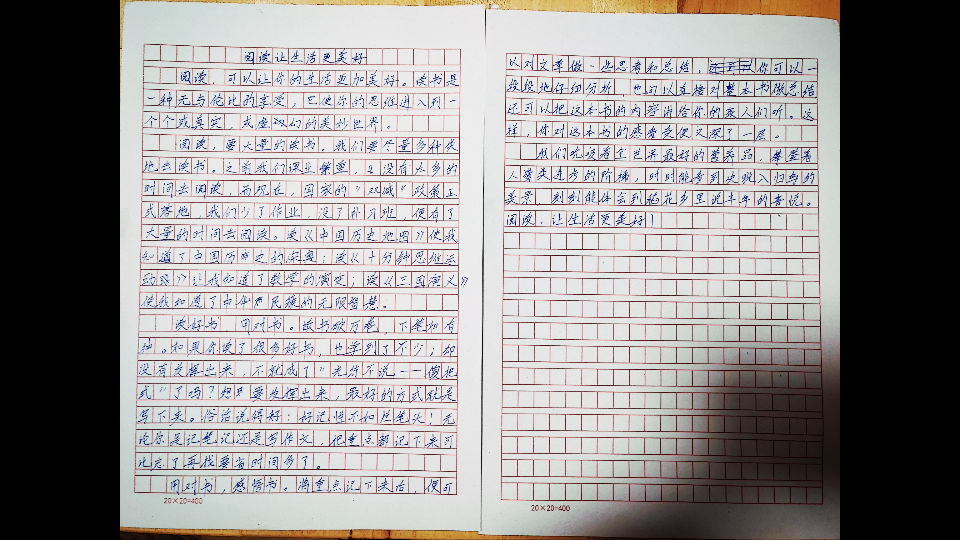 阅读让生活更美好
阅读，可以让你的生活更加美好。读书是
一种无与伦比的享受，它使你的思维进入到一
个个或真实，或虚幻的美妙世界。
阅读，要大量的读书。我们要尽量多种类
地去读书。之前我们课业繁重，没有太多的
时间去阅读，而现在，国家的“双减”政策正
式落地，我们少了作业，没了补习班，便有了
大量的时间去阅读。读《中国历史地图》使我
知道了中国历史之的深奥；读《十分钟思维
》让我知道了数学的演变；读《三国演义》
使我知道了中华民族的无限智慧。
读好书，用对书。读书破万卷，下笔如有
神。如果你读了很多好书，也学到了不少；却
没有发挥出来，不就成了“光你不说一一傻把
式”了吗？想要发挥出来，最好的方式就是
写下来。俗话说得好：好记性不如烂笔头！无
论你是记笔记还是写作文，但重点都记下来可
比忘了再找要省时间多了。
用对书，感悟书。将重点记下来后，便可
20×20=400
以对文章做一些思考和总结，你可以一
段段地仔细分析，也可以直接对整本书做总结
还可以把这本书的内容讲给你的家人们听。这
样，你对这本书的感悟受便又深了一层。
我们吮吸着全世界最好的营养品，攀登着
人类进步的阶梯，时时能看到
美景，刻刻能体会到稻花乡里说丰年的喜悦。
阅读，让生活更美好！
20×20=400